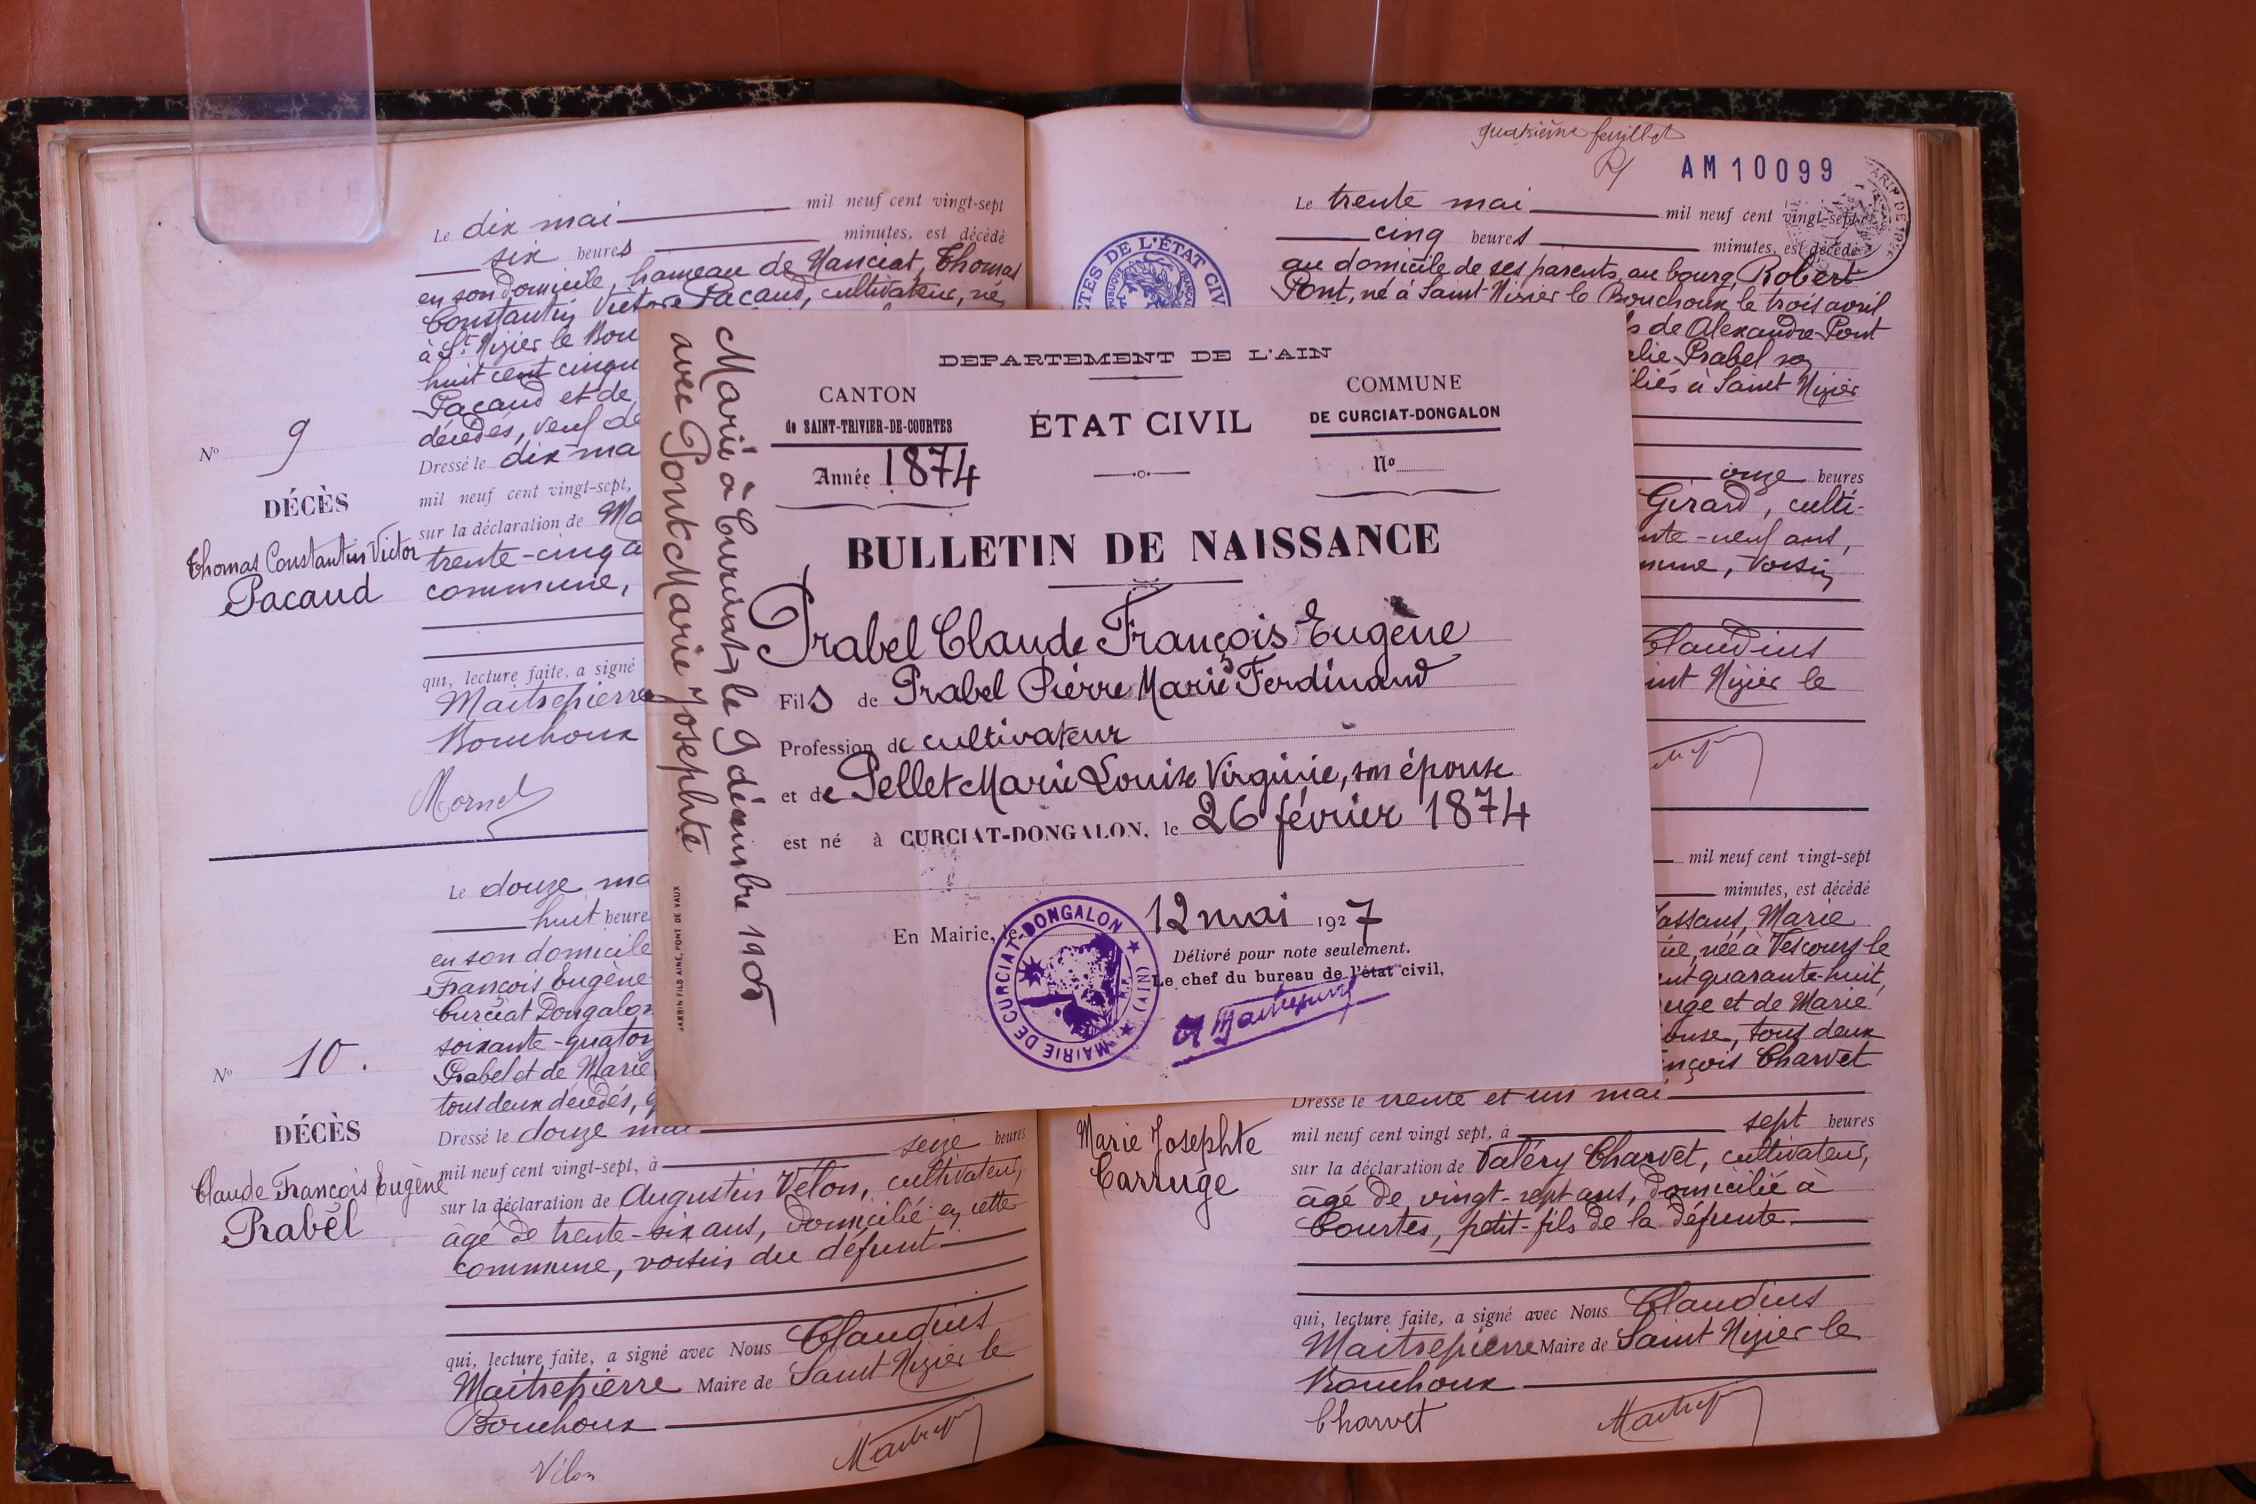 Le dix mai mil neuf cent vingt-sept
six heures minutes, est décédé
en son domicile, hameau de Manciat, Thomas
Constantin Victor Pacaud, cultivateur, né
à St Nizier le Bou
huit cent cinqu
Pacaud et de
décédés, veuf de
Dressé le dix ma
mil neuf cent vingt-sept,
sur la déclaration de Ma
trente-cinq a
commune,
qui, lecture faite, a signé
Maitrepierre
Bouchoux
Mornet
No 9
DÉCÈS
Thomas Constantin Victor
Pacaud
Le douze ma
huit heure
en son domicile
François Eugène
Curciat Dongalon
soixante-quator
Prabel et de Marie
tous deux décédés,
Dressé le douze mai
mil neuf cent vingt-sept, à seize heures
sur la déclaration de Augustin Vélon, cultivateur,
âgé de trente-six ans, domicilié en cette
commune, voisin du défunt
qui, lecture faite, a signé avec Nous Claudius
Maitrepierre Maire de Saint Nizier le
Bouchoux
Vélon
No 10.
DÉCÈS
Claude François Eugène
Prabel
DEPARTEMENT DE L'AIN
CANTON
de SAINT-TRIVIER-DE-COURTES
Année 1874
ÉTAT CIVIL
COMMUNE
DE CURCIAT-DONGALON
No
BULLETIN DE NAISSANCE
Prabel Claude François Eugène
Fils de Prabel Pierre Marie Ferdinand
Profession de cultivateur
et de Pellet Marie Louise Virginie, son épouse
est né à CURCIAT-DONGALON, le 26 février 1874
En Mairie, le 12 mai 1927
Délivré pour note seulement.
Le chef du bureau de l'état civil,
MAIRIE DE CURCIAT-DONGALON (AIN)
Marié à Curciat, le 9 décembre 1905
avec Pont Marie Josephte
JARRIN FILS AINÉ, PONT DE VAUX
quatrième feuillet
AM10099
ACTES DE L'ÉTAT CIV
Le trente mai mil neuf cent vingt-sept
cinq heures minutes, est décédé
au domicile de ses parents, au bourg, Robert
Pont, né à Saint Nizier le Bouchoux le trois avril
s de Alexandre Pont
élie Prabel sa
iliés à Saint Nizier
onze heures
Girard, culti-
nte-neuf ans,
mune, voisin
Claudius
int Nizier le
mil neuf cent vingt-sept
minutes, est décédé
assaus, Marie
née à Vescours le
ent quarante-huit,
uge et de Marie
ouse, tous deux
nçois Charvet
Dressé le trente et un mai
mil neuf cent vingt sept, à sept heures
sur la déclaration de Valéry Charvet, cultivateur,
âgé de vingt-sept ans, domicilié à
Courtes, petit-fils de la défunte
qui, lecture faite, a signé avec Nous Claudius
Maitrepierre Maire de Saint Nizier le
Bouchoux
Charvet
Marie Josephte
Carruge